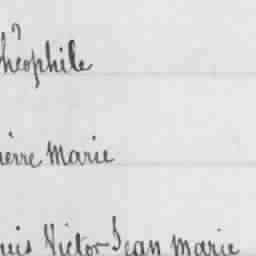 héophile
ierre Marie
uis Victor Jean Marie